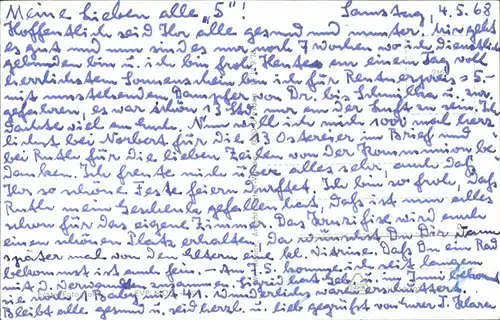 Meine Lieben alle „5"! Samstag, 4.5.68
Hoffentlich seid Ihr alle gesund und munter. Mir geht
es gut und nun sind es nur noch 7 Wochen wo ich dienstlich
gebunden bin u. ich bin froh. Heute an einem Tag voll
herrlichstem Sonnenschein bin ich für Rentnerpreis = 5.-
mit umstehenden Dampfer von Dr. bis Schmilka u. zur.
gefahren, es war schön 13 Std. nur an der Luft zu sein. Ich
dachte viel an Euch. Nun will ich mich 1000 mal herz
lichst bei Norbert für die 13 Ostereier im Brief und
bei Ruth für die lieben Zeilen von der Kommunion be
danken. Ich freute mich über alles sehr, auch daß
Ihr so schöne Feste feiern durftet. Ich bin so froh, daß
Ruth mein Geschenk gefallen hat, daß ist nun alles
schon für das eigene Zimmer. Das Kruzifix wird auch
einen schönen Platz erhalten. Da wünschst Du Dir dann
später mal von den Eltern eine kl. Vitrine. Daß Du ein Rad
bekommst ist auch fein. - Am 1.5. komme ich seit langem
mit d. Verwandten zusammen. Sigrid hat
sie noch Baby mit 41. wunderlich
Bleibt alle gesund u. seid herzl. u. lieb gegrüßt von Eurer T. Klara